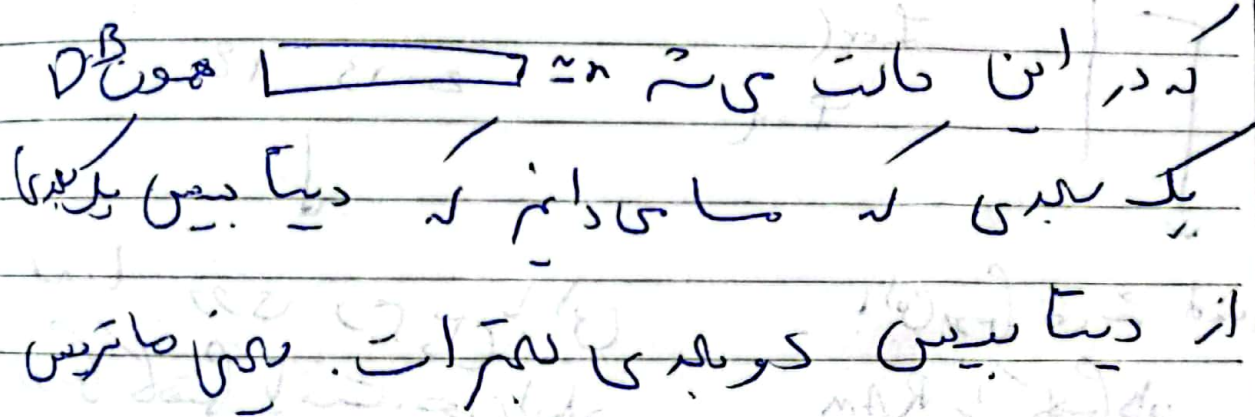 که در این حالت می‌شه n≃ همون DB
یک بعدی که مسا می‌دانیم که دیتا بیس یک بعدی
از دیتا بیس دو بعدی بهتر است. یعنی ماتریس